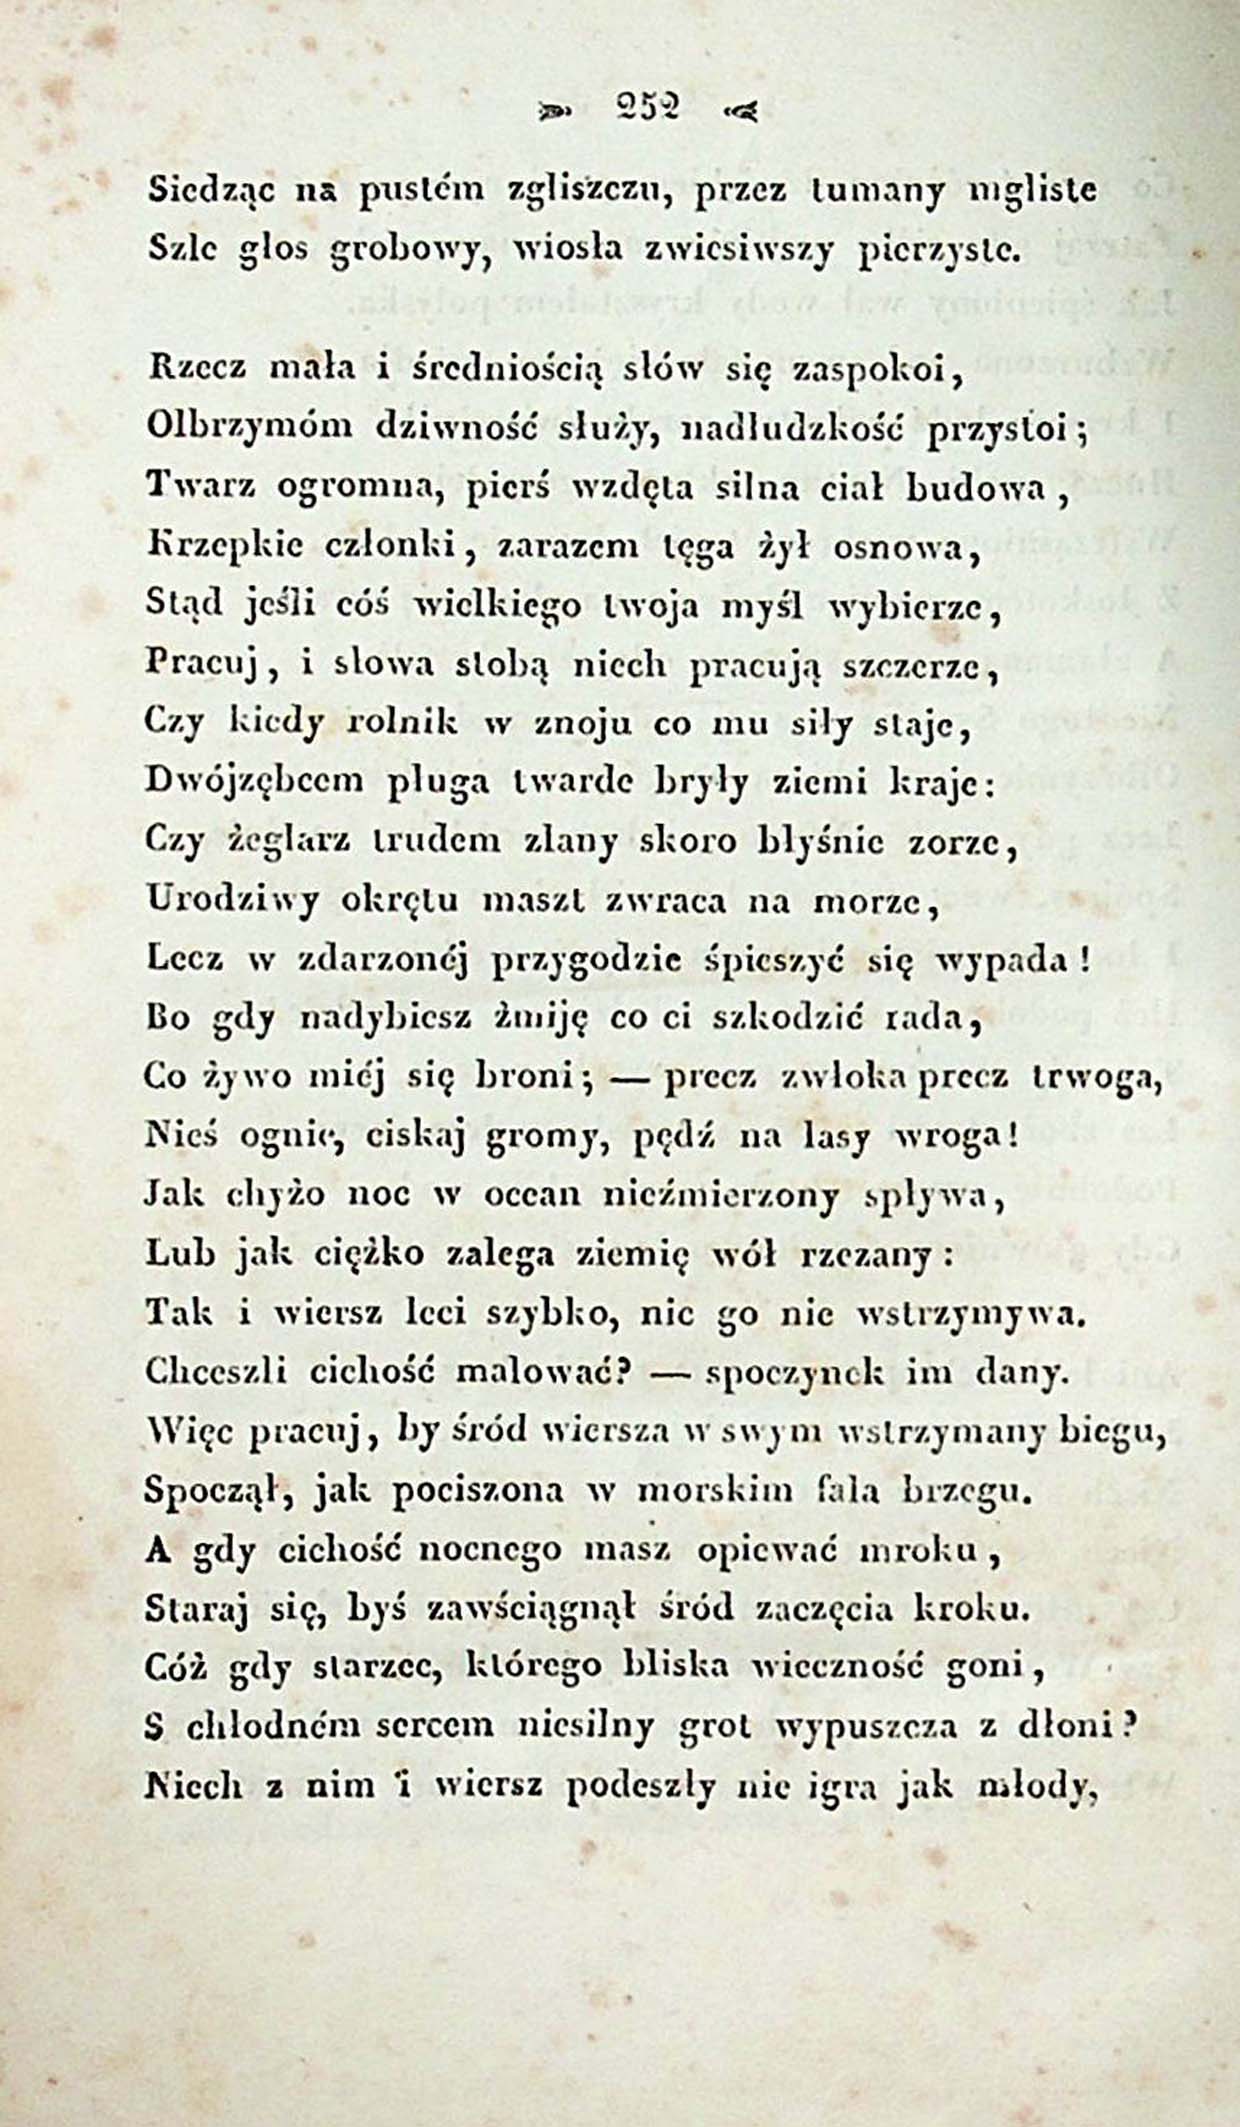 252
Siedząc na pustém zgliszczu, przez tumany mgliste
Szle głos grobowy, wiosła zwiesiwszy pierzyste.
Rzecz mała i średniością słów się zaspokoi,
Olbrzymóm dziwność służy, nadludzkość przystoi;
Twarz ogromna, pierś wzdęta silna ciał budowa,
Krzepkie członki, zarazem tęga żył osnowa,
Stąd jeśli cóś wielkiego twoja myśl wybierze,
Pracuj, i słowa stobą niech pracują szczerze,
Czy kiedy rolnik w znoju co mu siły staje,
Dwójzębcem pługa twarde bryły ziemi kraje:
Czy żeglarz trudem zlany skoro błyśnie zorze,
Urodziwy okrętu maszt zwraca na morze,
Lecz w zdarzonéj przygodzie śpieszyć się wypada!
Bo gdy nadybiesz żmiję co ci szkodzić rada,
Co żywo miéj się broni; — precz zwłoka precz trwoga,
Nieś ognie, ciskaj gromy, pędź na lasy wroga!
Jak chyżo noc w ocean nieźmierzony spływa,
Lub jak ciężko zalega ziemię wół rzezany:
Tak i wiersz leci szybko, nic go nie wstrzymywa.
Chceszli cichość malować? — spoczynek im dany.
Więc pracuj, by śród wiersza w swym wstrzymany biegu,
Spoczął, jak pociszona w morskim fala brzegu.
A gdy cichość nocnego masz opiewać mroku,
Staraj się, byś zawściągnął śród zaczęcia kroku.
Cóż gdy starzec, którego bliska wieczność goni,
S chłodném sercem niesilny grot wypuszcza z dłoni?
Niech z nim i wiersz podeszły nie igra jak młody,